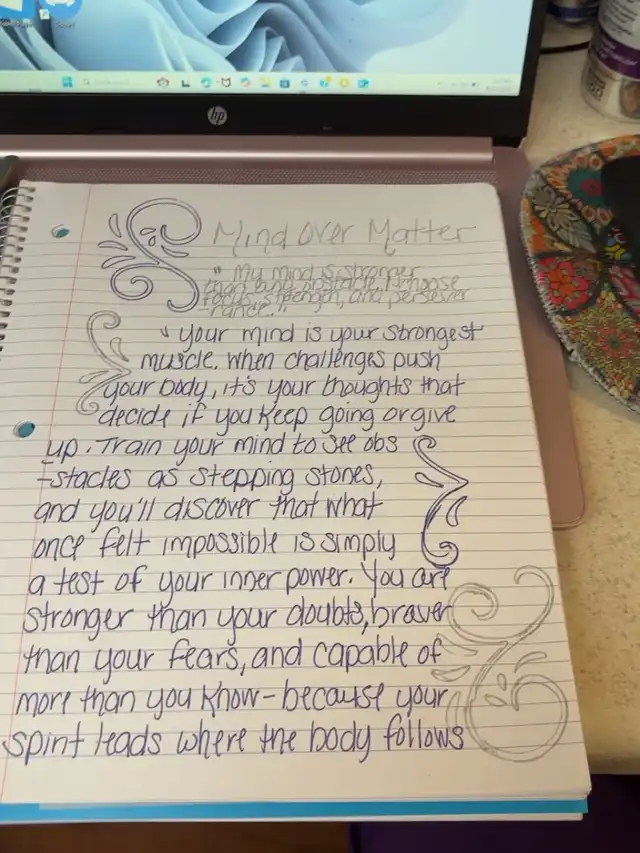 hp
Mind Over Matter
" My mind is stronger
than any obstacle. I choose
focus, strength, and persever
-rance. "
" your mind is your strongest
muscle. When challenges push
your body, it's your thoughts that
decide if you keep going or give
up. Train your mind to see obs
-stacles as stepping stones,
and you'll discover that what
once felt impossible is simply
a test of your inner power. You are
stronger than your doubts, braver
than your fears, and capable of
more than you know - because your
spirit leads where the body follows